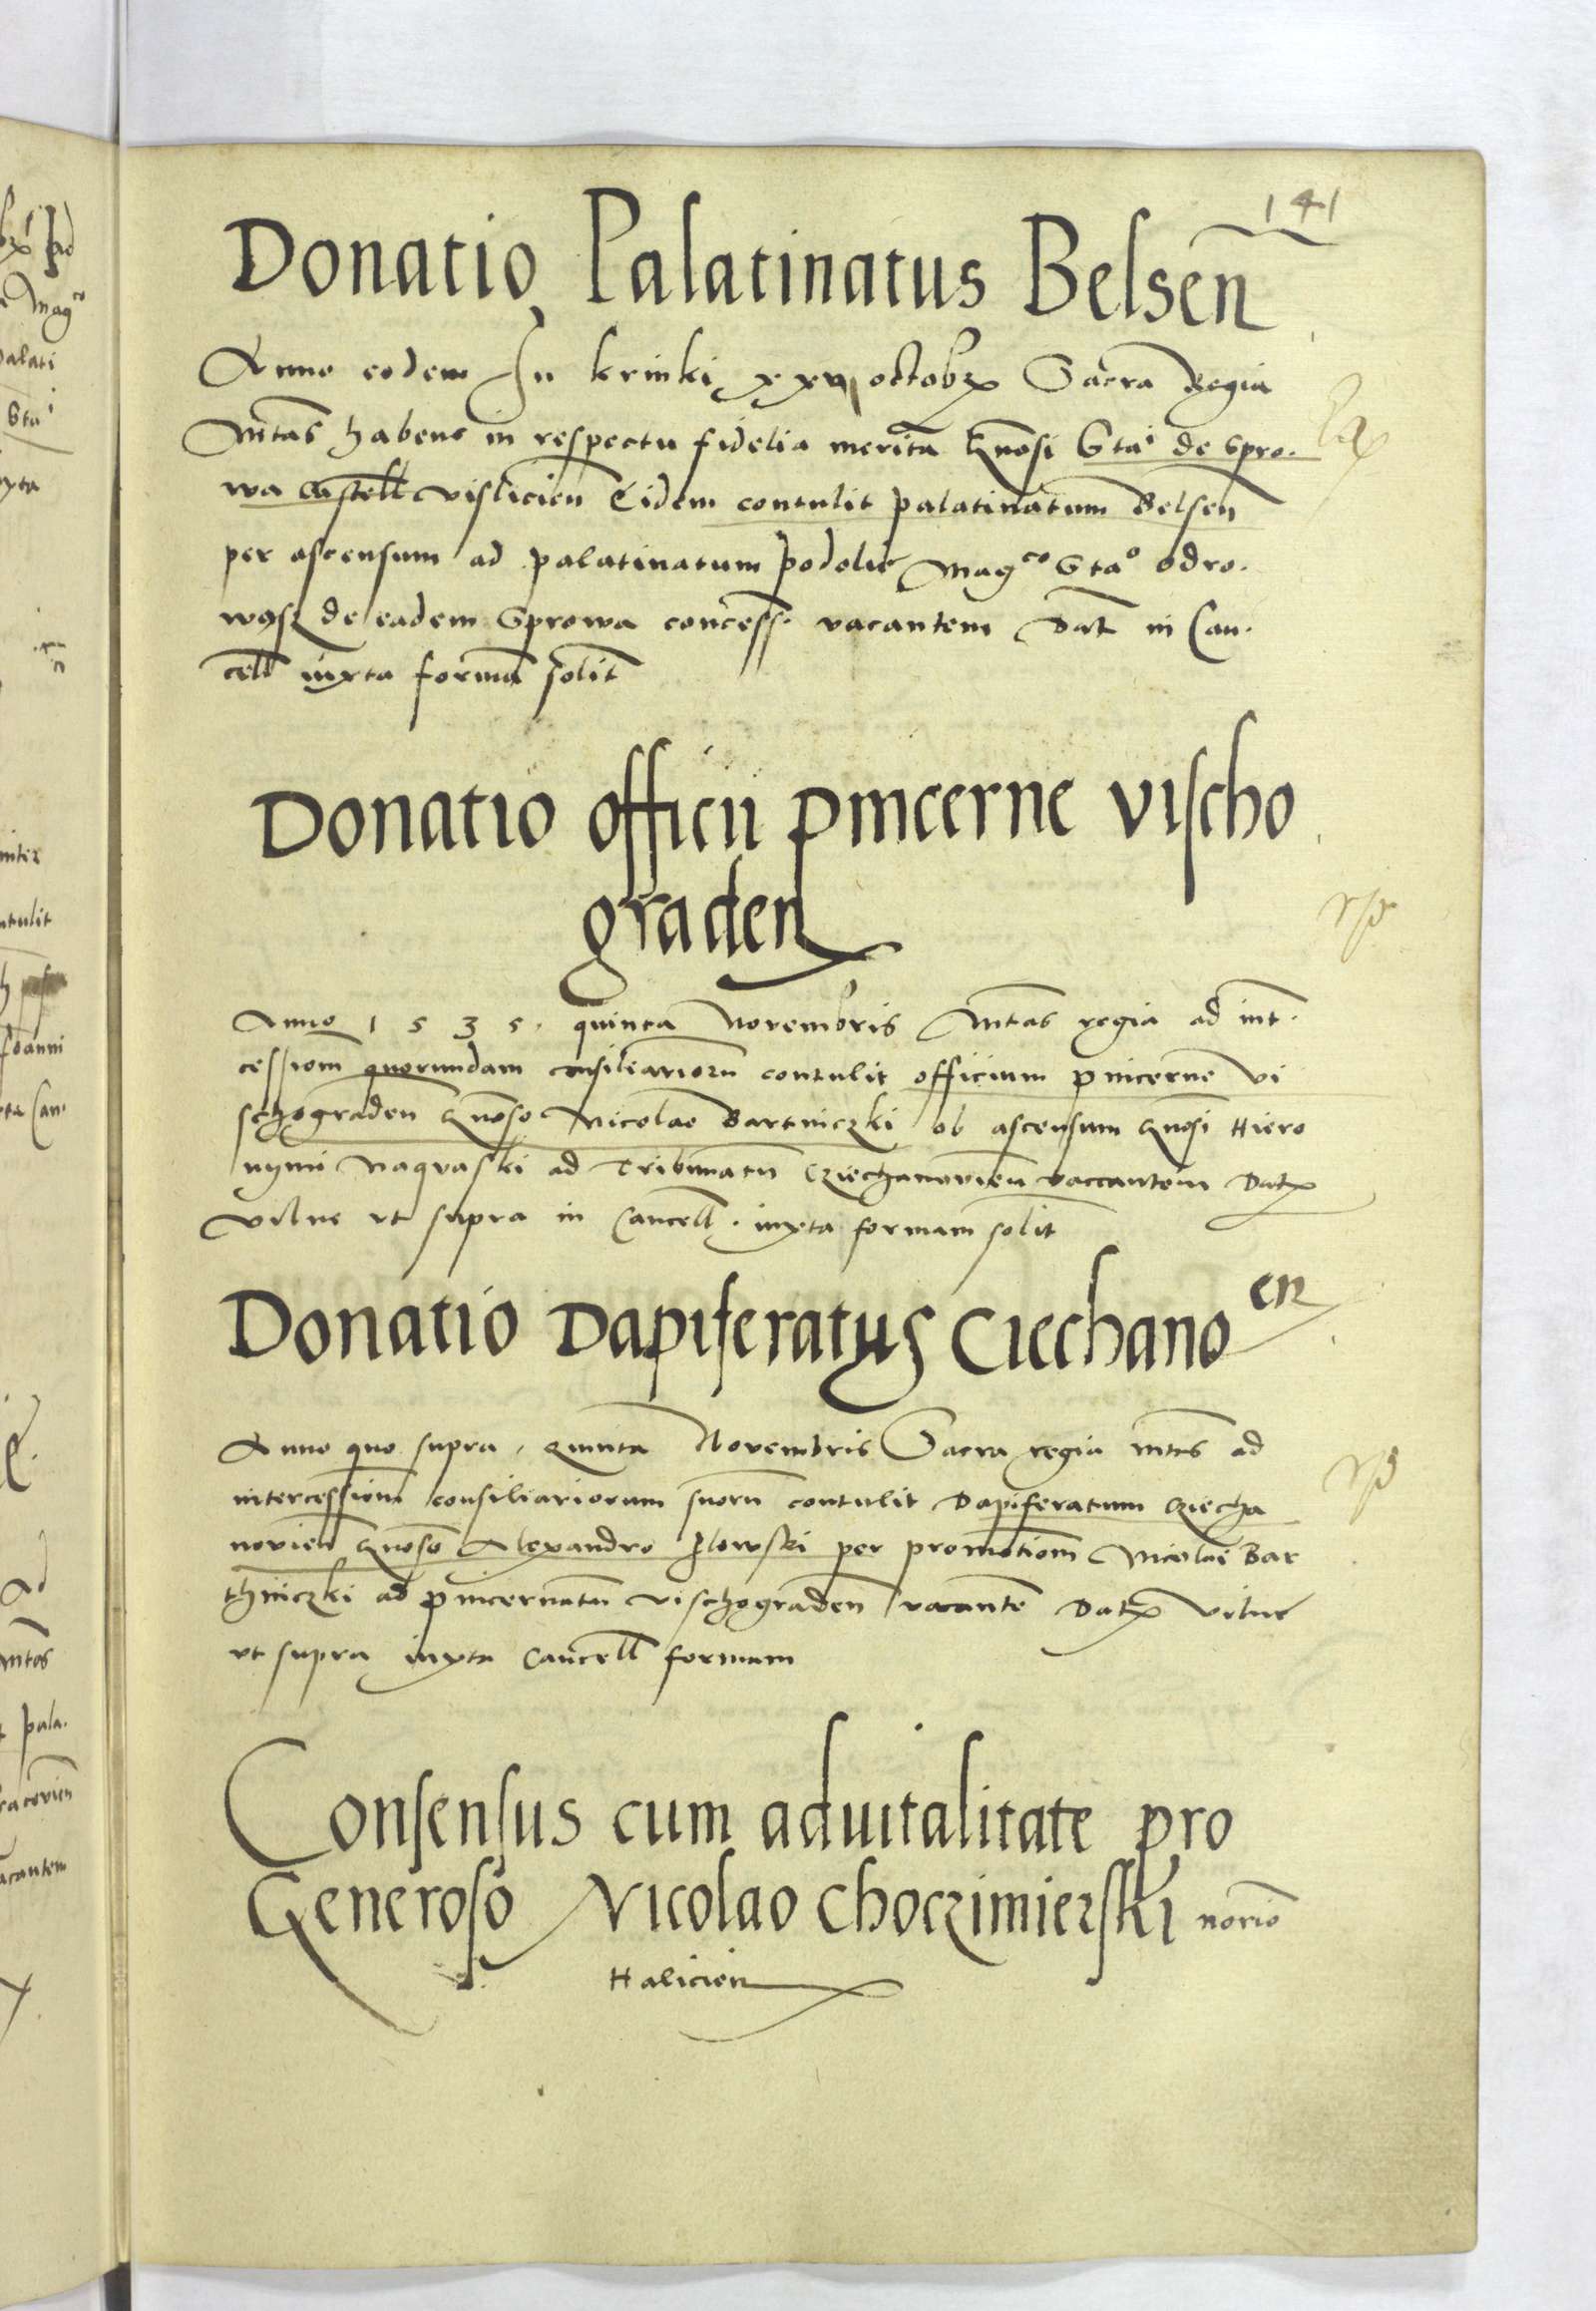 141
Donatio Palatinatus Belsen̄
Anno eodem In krinki xxvi octobr̄ Sacra Regia
Mtas habens in respectu fidelia merita gnosi Sta¹ de spro.
wa castell vislicien Eidem contulit palatinatum Belsen
per ascensum ad palatinatum podolie Mag^co Sta^o odro.
wąsz de eadem Sprowa concess. vacantem Dat in Can.
cell iuxta forma solit
Donatio officii pincerne vischo
graden
Anno 1535. quinta Novembris Mtas regia ad int.
cessiom quorundam consiliariorū contulit officium pincerne vi
schograden gnoso Nicolao Bartniczki ob ascensum gnosi Hiero
nymi Naqvaski ad Tribunatū Cziechanovien vaccantem Dat
vilne ut supra in Cancell. iuxta formam solit
Donatio Dapiferatus Ciechano^en
Anno quo supra, quinta Novembris Sacra regia mtas ad
intercessiom consiliariorum suorū contulit Dapiferatum Cziecha
novien gnoso Alexandro Ilowski per promotiom Nicolai Bar
thniczki ad pincernatū vischograden vacante Dat vilne
ut supra iuxta Cancell formam
Consensus cum aduitalitate pro
Generoso Nicolao Choczimierski norio
Halicien